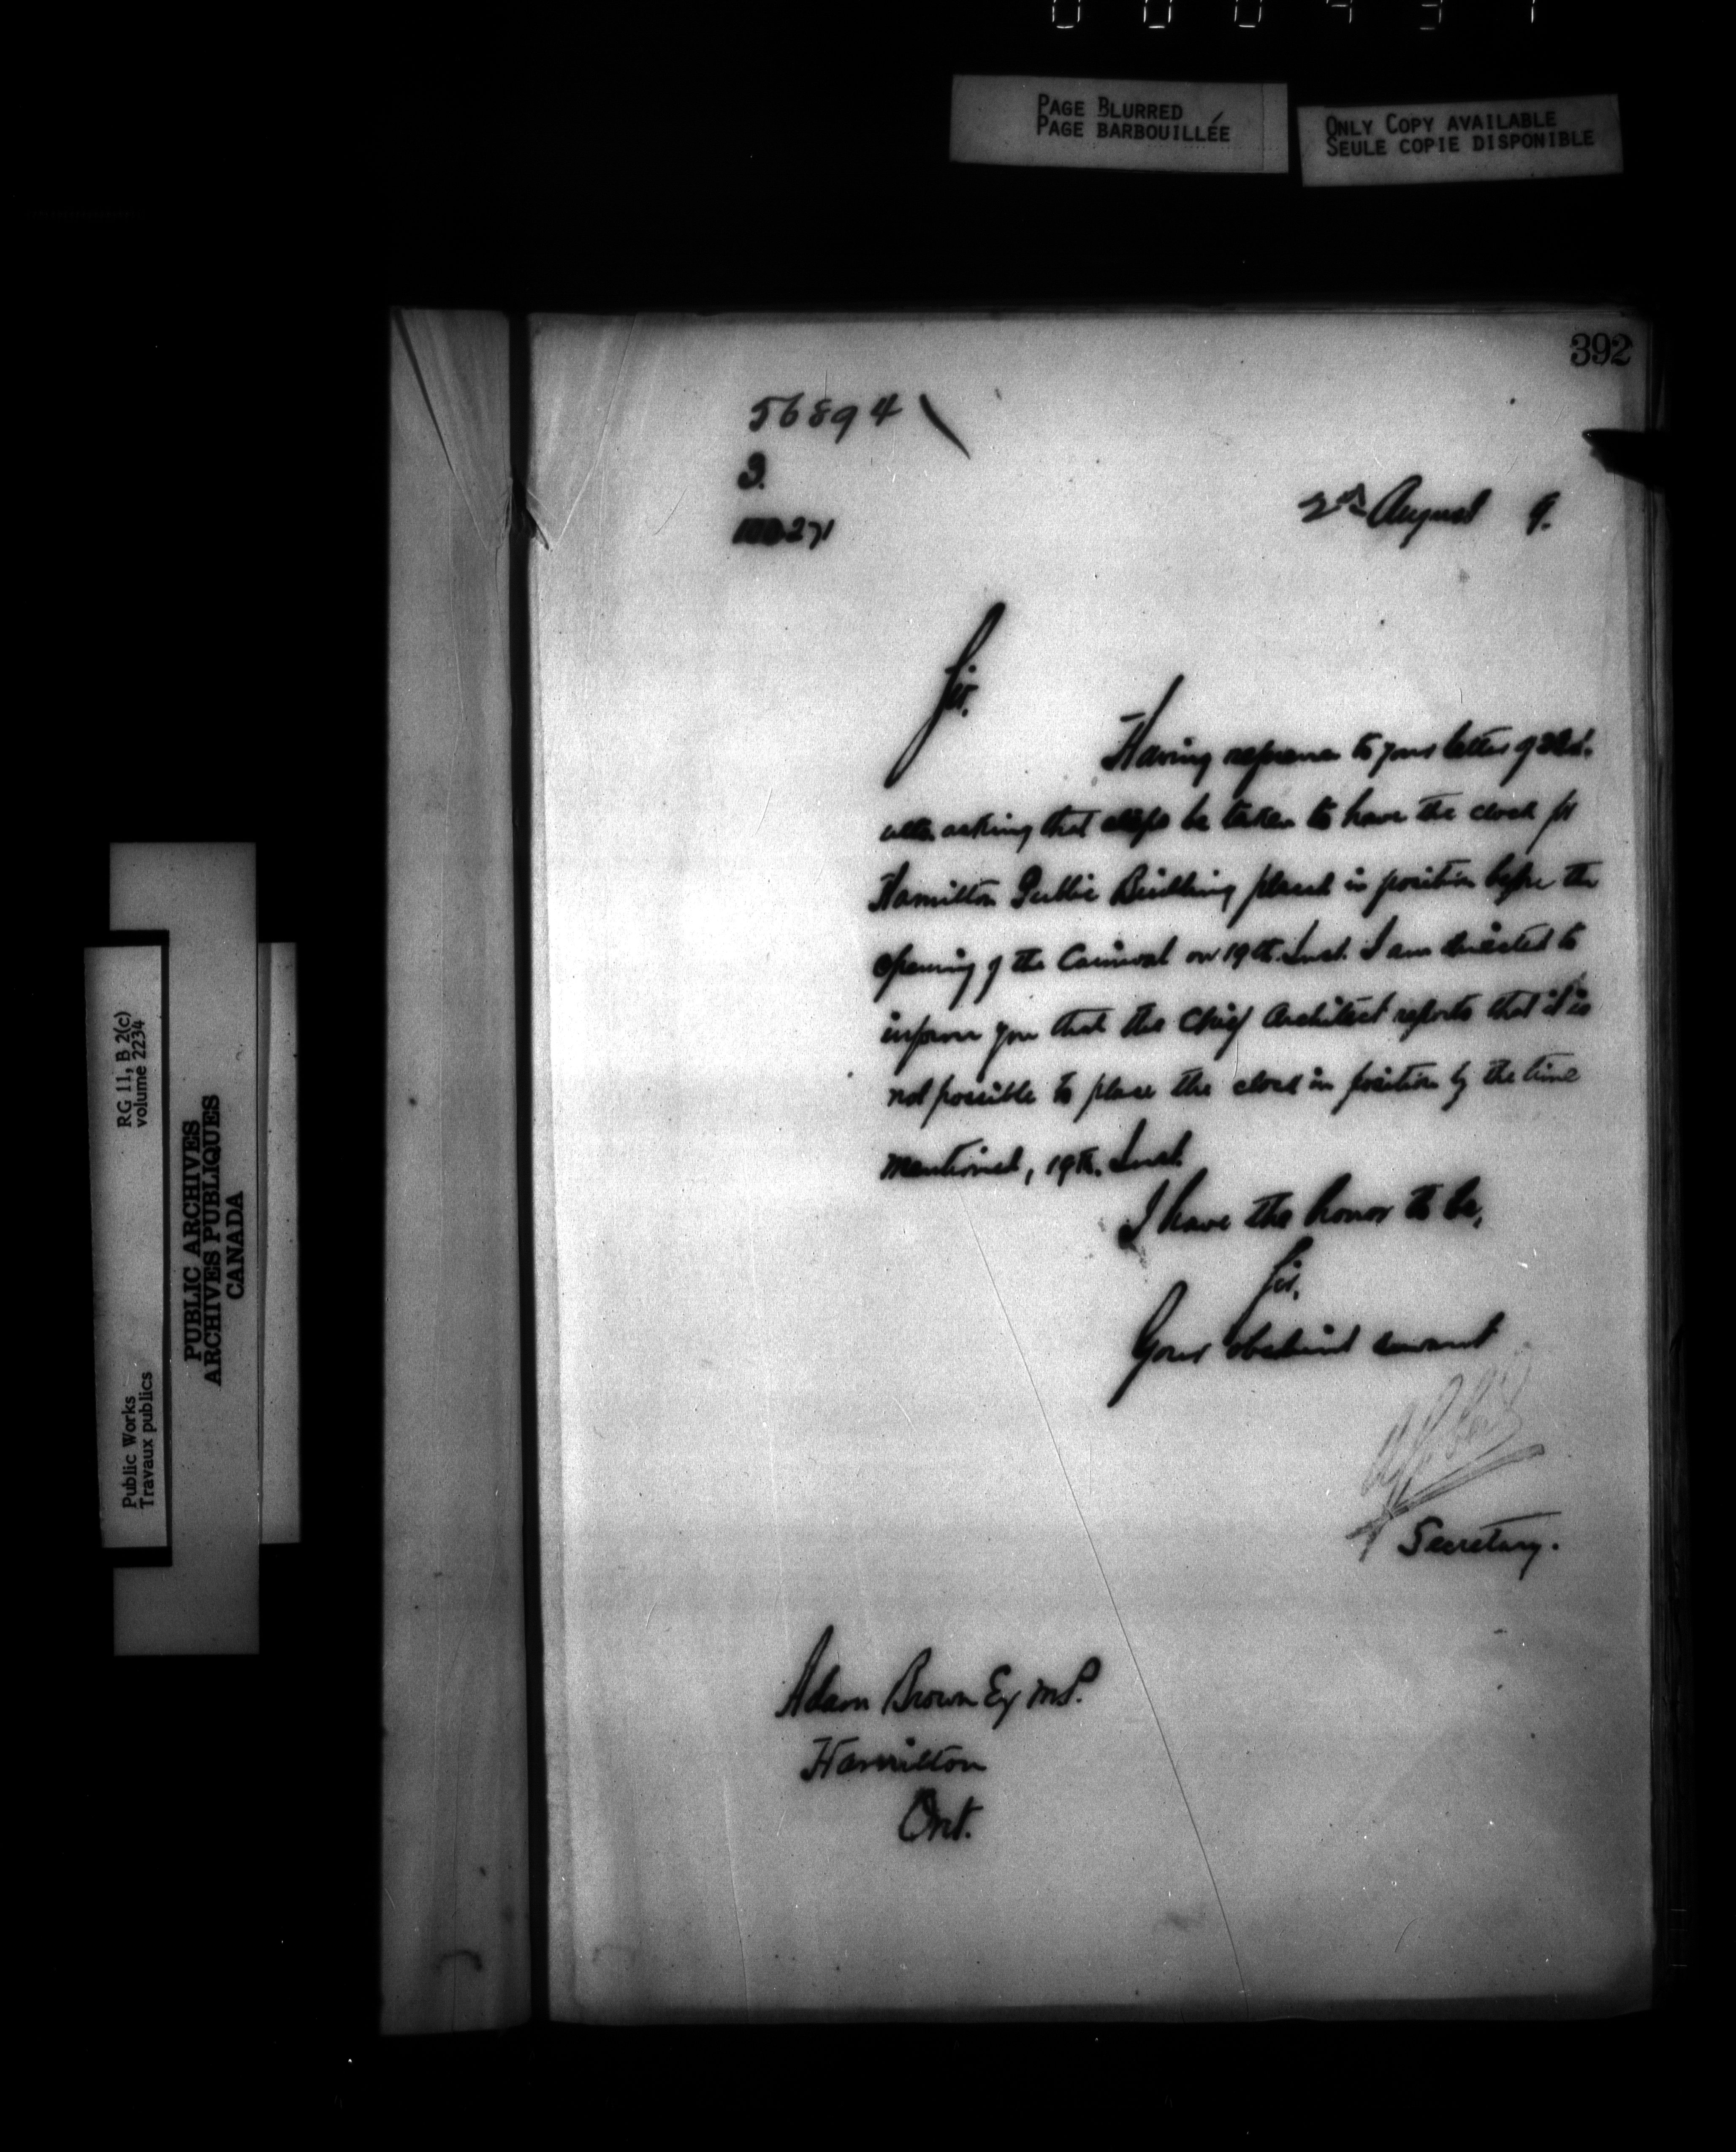 PAGE BLURRED
PAGE BARBOUILLÉE
ONLY COPY AVAILABLE
SEULE COPIE DISPONIBLE
392
56894
3.
271
2nd August 9.
Sir,
Having reference to your letter of
asking that steps be taken to have the clock for
Hamilton Public Building placed in position before the
opening of the Carnival on 19th. Inst. I am directed to
inform you that the Chief Architect reports that it is
not possible to place the clock in position by the time
mentioned, 19th. Inst.
I have the honor to be,
Sir,
Your obedient servant
Secretary.
Adam Brown Esq M.P.
Hamilton
Ont.
RG 11, B 2(c)
volume 2234
Public Works
Travaux publics
PUBLIC ARCHIVES
ARCHIVES PUBLIQUES
CANADA